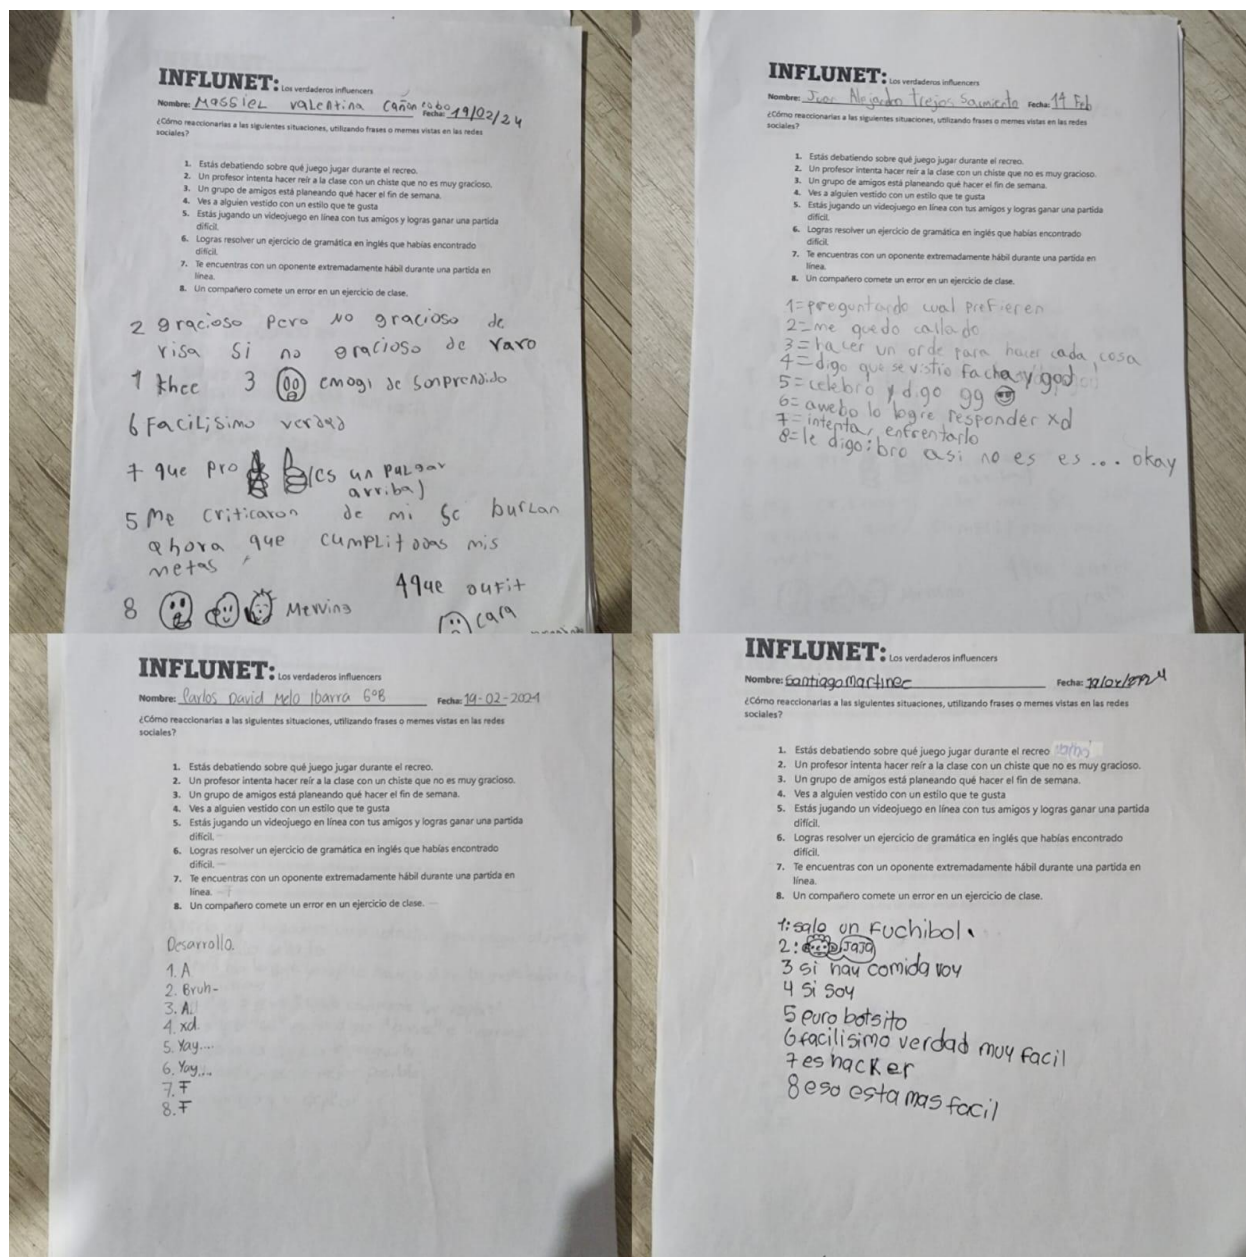 INFLUNET: Los verdaderos influencers
Nombre: Massiel valentina Cañon cobo Fecha: 19/02/24
¿Cómo reaccionarías a las siguientes situaciones, utilizando frases o memes vistas en las redes
sociales?
1. Estás debatiendo sobre qué juego jugar durante el recreo.
2. Un profesor intenta hacer reír a la clase con un chiste que no es muy gracioso.
3. Un grupo de amigos está planeando qué hacer el fin de semana.
4. Ves a alguien vestido con un estilo que te gusta
5. Estás jugando un videojuego en línea con tus amigos y logras ganar una partida
difícil.
6. Logras resolver un ejercicio de gramática en inglés que habías encontrado
difícil.
7. Te encuentras con un oponente extremadamente hábil durante una partida en
línea.
8. Un compañero comete un error en un ejercicio de clase.
2 gracioso pero no gracioso de
risa si no gracioso de raro
1 khee 3 emogi de sonprendido
6 Facilisimo verdad
7 que pro (es un pulgar
arriba)
5 Me criticaron de mi se burlan
ahora que cumpli todas mis
metas
4 que outfit
8 Mewing
cara
INFLUNET: Los verdaderos influencers
Nombre: Juan Alejandro trejos Sarmiento Fecha: 19 Feb
¿Cómo reaccionarías a las siguientes situaciones, utilizando frases o memes vistas en las redes
sociales?
1. Estás debatiendo sobre qué juego jugar durante el recreo.
2. Un profesor intenta hacer reír a la clase con un chiste que no es muy gracioso.
3. Un grupo de amigos está planeando qué hacer el fin de semana.
4. Ves a alguien vestido con un estilo que te gusta
5. Estás jugando un videojuego en línea con tus amigos y logras ganar una partida
difícil.
6. Logras resolver un ejercicio de gramática en inglés que habías encontrado
difícil.
7. Te encuentras con un oponente extremadamente hábil durante una partida en
línea.
8. Un compañero comete un error en un ejercicio de clase.
1=preguntando cual prefieren
2=me quedo callado
3=hacer un orde para hacer cada cosa
4=digo que se vistio facha y god
5=celebro y digo gg
6=awebo lo logre responder xd
7=intentar enfrentarlo
8=le digo: bro asi no es es... okay
INFLUNET: Los verdaderos influencers
Nombre: Carlos David Melo Ibarra 6°B Fecha: 19-02-2024
¿Cómo reaccionarías a las siguientes situaciones, utilizando frases o memes vistas en las redes
sociales?
1. Estás debatiendo sobre qué juego jugar durante el recreo.
2. Un profesor intenta hacer reír a la clase con un chiste que no es muy gracioso.
3. Un grupo de amigos está planeando qué hacer el fin de semana.
4. Ves a alguien vestido con un estilo que te gusta
5. Estás jugando un videojuego en línea con tus amigos y logras ganar una partida
difícil.
6. Logras resolver un ejercicio de gramática en inglés que habías encontrado
difícil.
7. Te encuentras con un oponente extremadamente hábil durante una partida en
línea.
8. Un compañero comete un error en un ejercicio de clase.
Desarrollo.
1. A
2. Bruh-
3. A.
4. xd.
5. Yay....
6. Yay...
7. F
8. F
INFLUNET: Los verdaderos influencers
Nombre: Santiago Martinec Fecha:
¿Cómo reaccionarías a las siguientes situaciones, utilizando frases o memes vistas en las redes
sociales?
1. Estás debatiendo sobre qué juego jugar durante el recreo
2. Un profesor intenta hacer reír a la clase con un chiste que no es muy gracioso.
3. Un grupo de amigos está planeando qué hacer el fin de semana.
4. Ves a alguien vestido con un estilo que te gusta
5. Estás jugando un videojuego en línea con tus amigos y logras ganar una partida
difícil.
6. Logras resolver un ejercicio de gramática en inglés que habías encontrado
difícil.
7. Te encuentras con un oponente extremadamente hábil durante una partida en
línea.
8. Un compañero comete un error en un ejercicio de clase.
1: sale un Fuchibol.
2: JaJa
3 si hay comida voy
4 si soy
5 puro botsito
6 facilisimo verdad muy facil
7 es hacker
8 eso esta mas facil